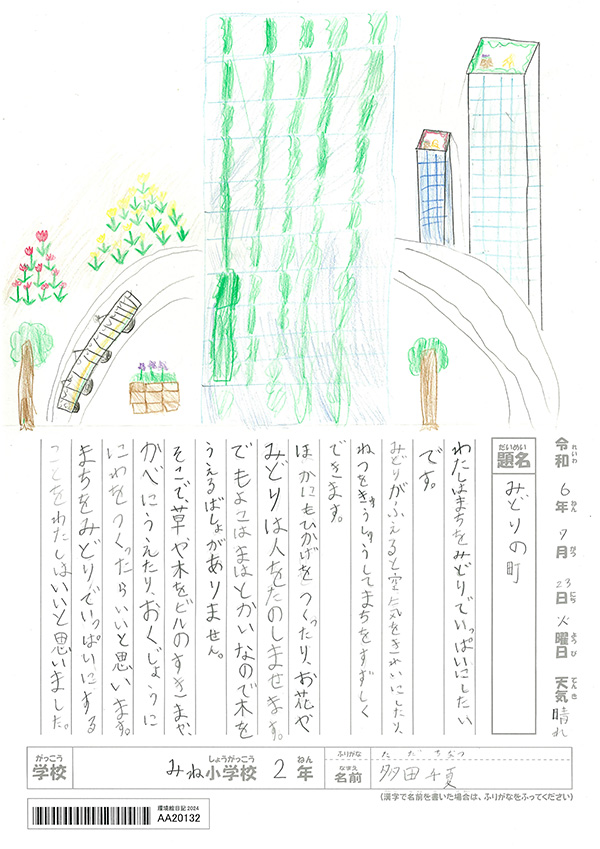 令和6年7月23日火曜日 天気晴れ
れいわ ねん がつ にち ようび てんき
だいめい
題名 みどりの町
わたしはまちをみどりでいっぱいにしたい
です。
みどりがふえると空気をきれいにしたり、
ねつをきゅうしゅうしてまちをすずしく
できます。
ほかにもひかげをつくったり、お花や
みどりは人をたのしませます。
でもよこはまはとかいなので木を
うえるばしょがありません。
そこで、草や木をビルのすきまや、
かべにうえたり、おくじょうに
にわをつくったらいいと思います。
まちをみどりでいっぱいにする
ことをわたしはいいと思いました。
がっこう しょうがっこう ねん
学校 みね小学校 2年
ふりがな ただ ちなつ
なまえ
名前 多田千夏
(漢字で名前を書いた場合は、ふりがなをふってください)
環境絵日記2024
AA20132